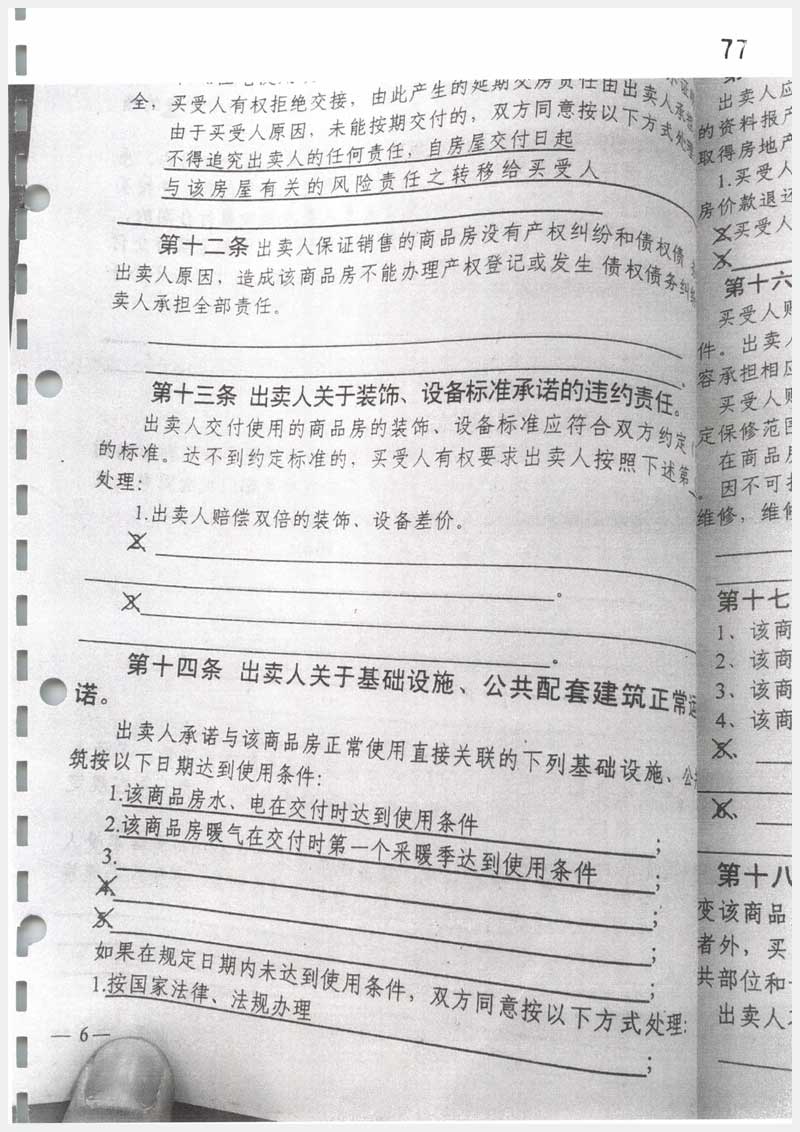 77
全，买受人有权拒绝交接，由此产生的延期交房责任由出卖人承担
由于买受人原因，未能按期交付的，双方同意按以下方式处理
不得追究出卖人的任何责任，自房屋交付日起
与该房屋有关的风险责任之转移给买受人
第十二条 出卖人保证销售的商品房没有产权纠纷和债权债
出卖人原因，造成该商品房不能办理产权登记或发生 债权债务纠纷
卖人承担全部责任。
第十三条 出卖人关于装饰、设备标准承诺的违约责任。
出卖人交付使用的商品房的装饰、设备标准应符合双方约定（
的标准。达不到约定标准的，买受人有权要求出卖人按照下述第
处理：
1.出卖人赔偿双倍的装饰、设备差价。
2.
。
3.
。
第十四条 出卖人关于基础设施、公共配套建筑正常运
诺。
出卖人承诺与该商品房正常使用直接关联的下列基础设施、公共
筑按以下日期达到使用条件：
1.该商品房水、电在交付时达到使用条件；
2.该商品房暖气在交付时第一个采暖季达到使用条件；
3.；
4.；
5.；
如果在规定日期内未达到使用条件，双方同意按以下方式处理：
1.按国家法律、法规办理；
— 6 —
出卖人应
的资料报产
取得房地产
1.买受人
房价款退还
2.买受人
3.
第十六
买受人赔
件。出卖人
容承担相应
买受人赔
定保修范围
在商品房
。因不可抗
维修，维修
第十七
1、该商
2、该商
3、该商
4、该商
5、
6、
第十八
变该商品
者外，买
共部位和
出卖人